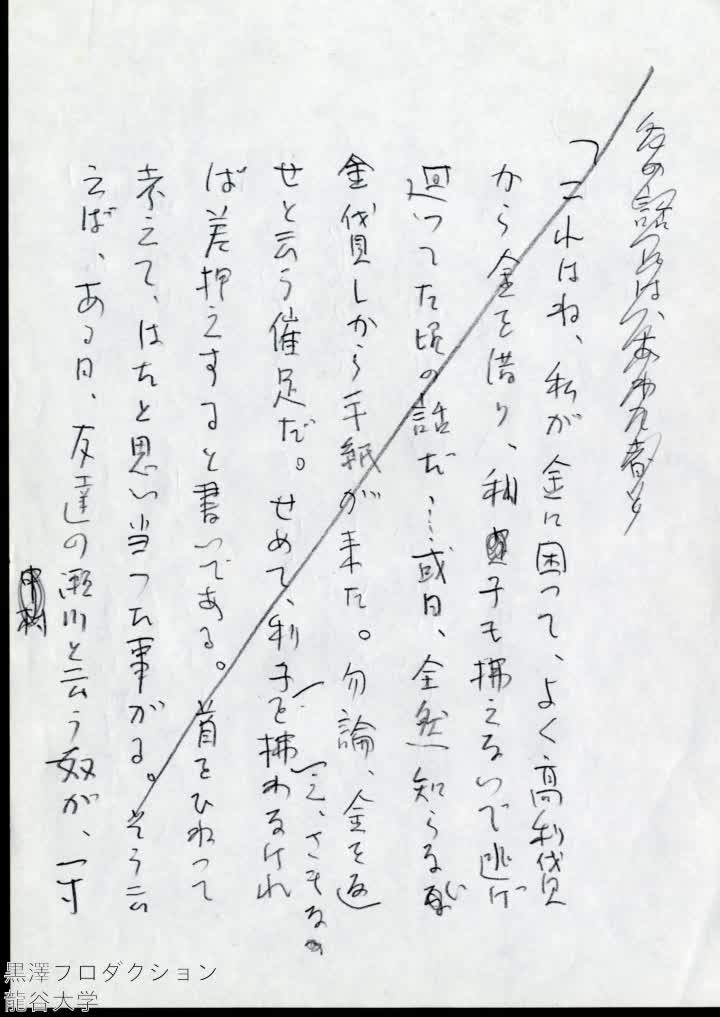 「これはね、私が金に困って、よく高利貸
から金を借り、利子も拂えないで逃げ
廻ってた頃の話だ……或日、全然知らない
金貸しから手紙が来た。勿論、金を返
せと云う催足だ。せめて、利子を拂わなければ
え、さもな
ば差押えすると書いてある。首をひねって
考えて、はたと思い当った事がある。そう云
えば、ある日、友達の瀬川と云う奴が、一寸
中村
黒澤プロダクション
龍谷大学